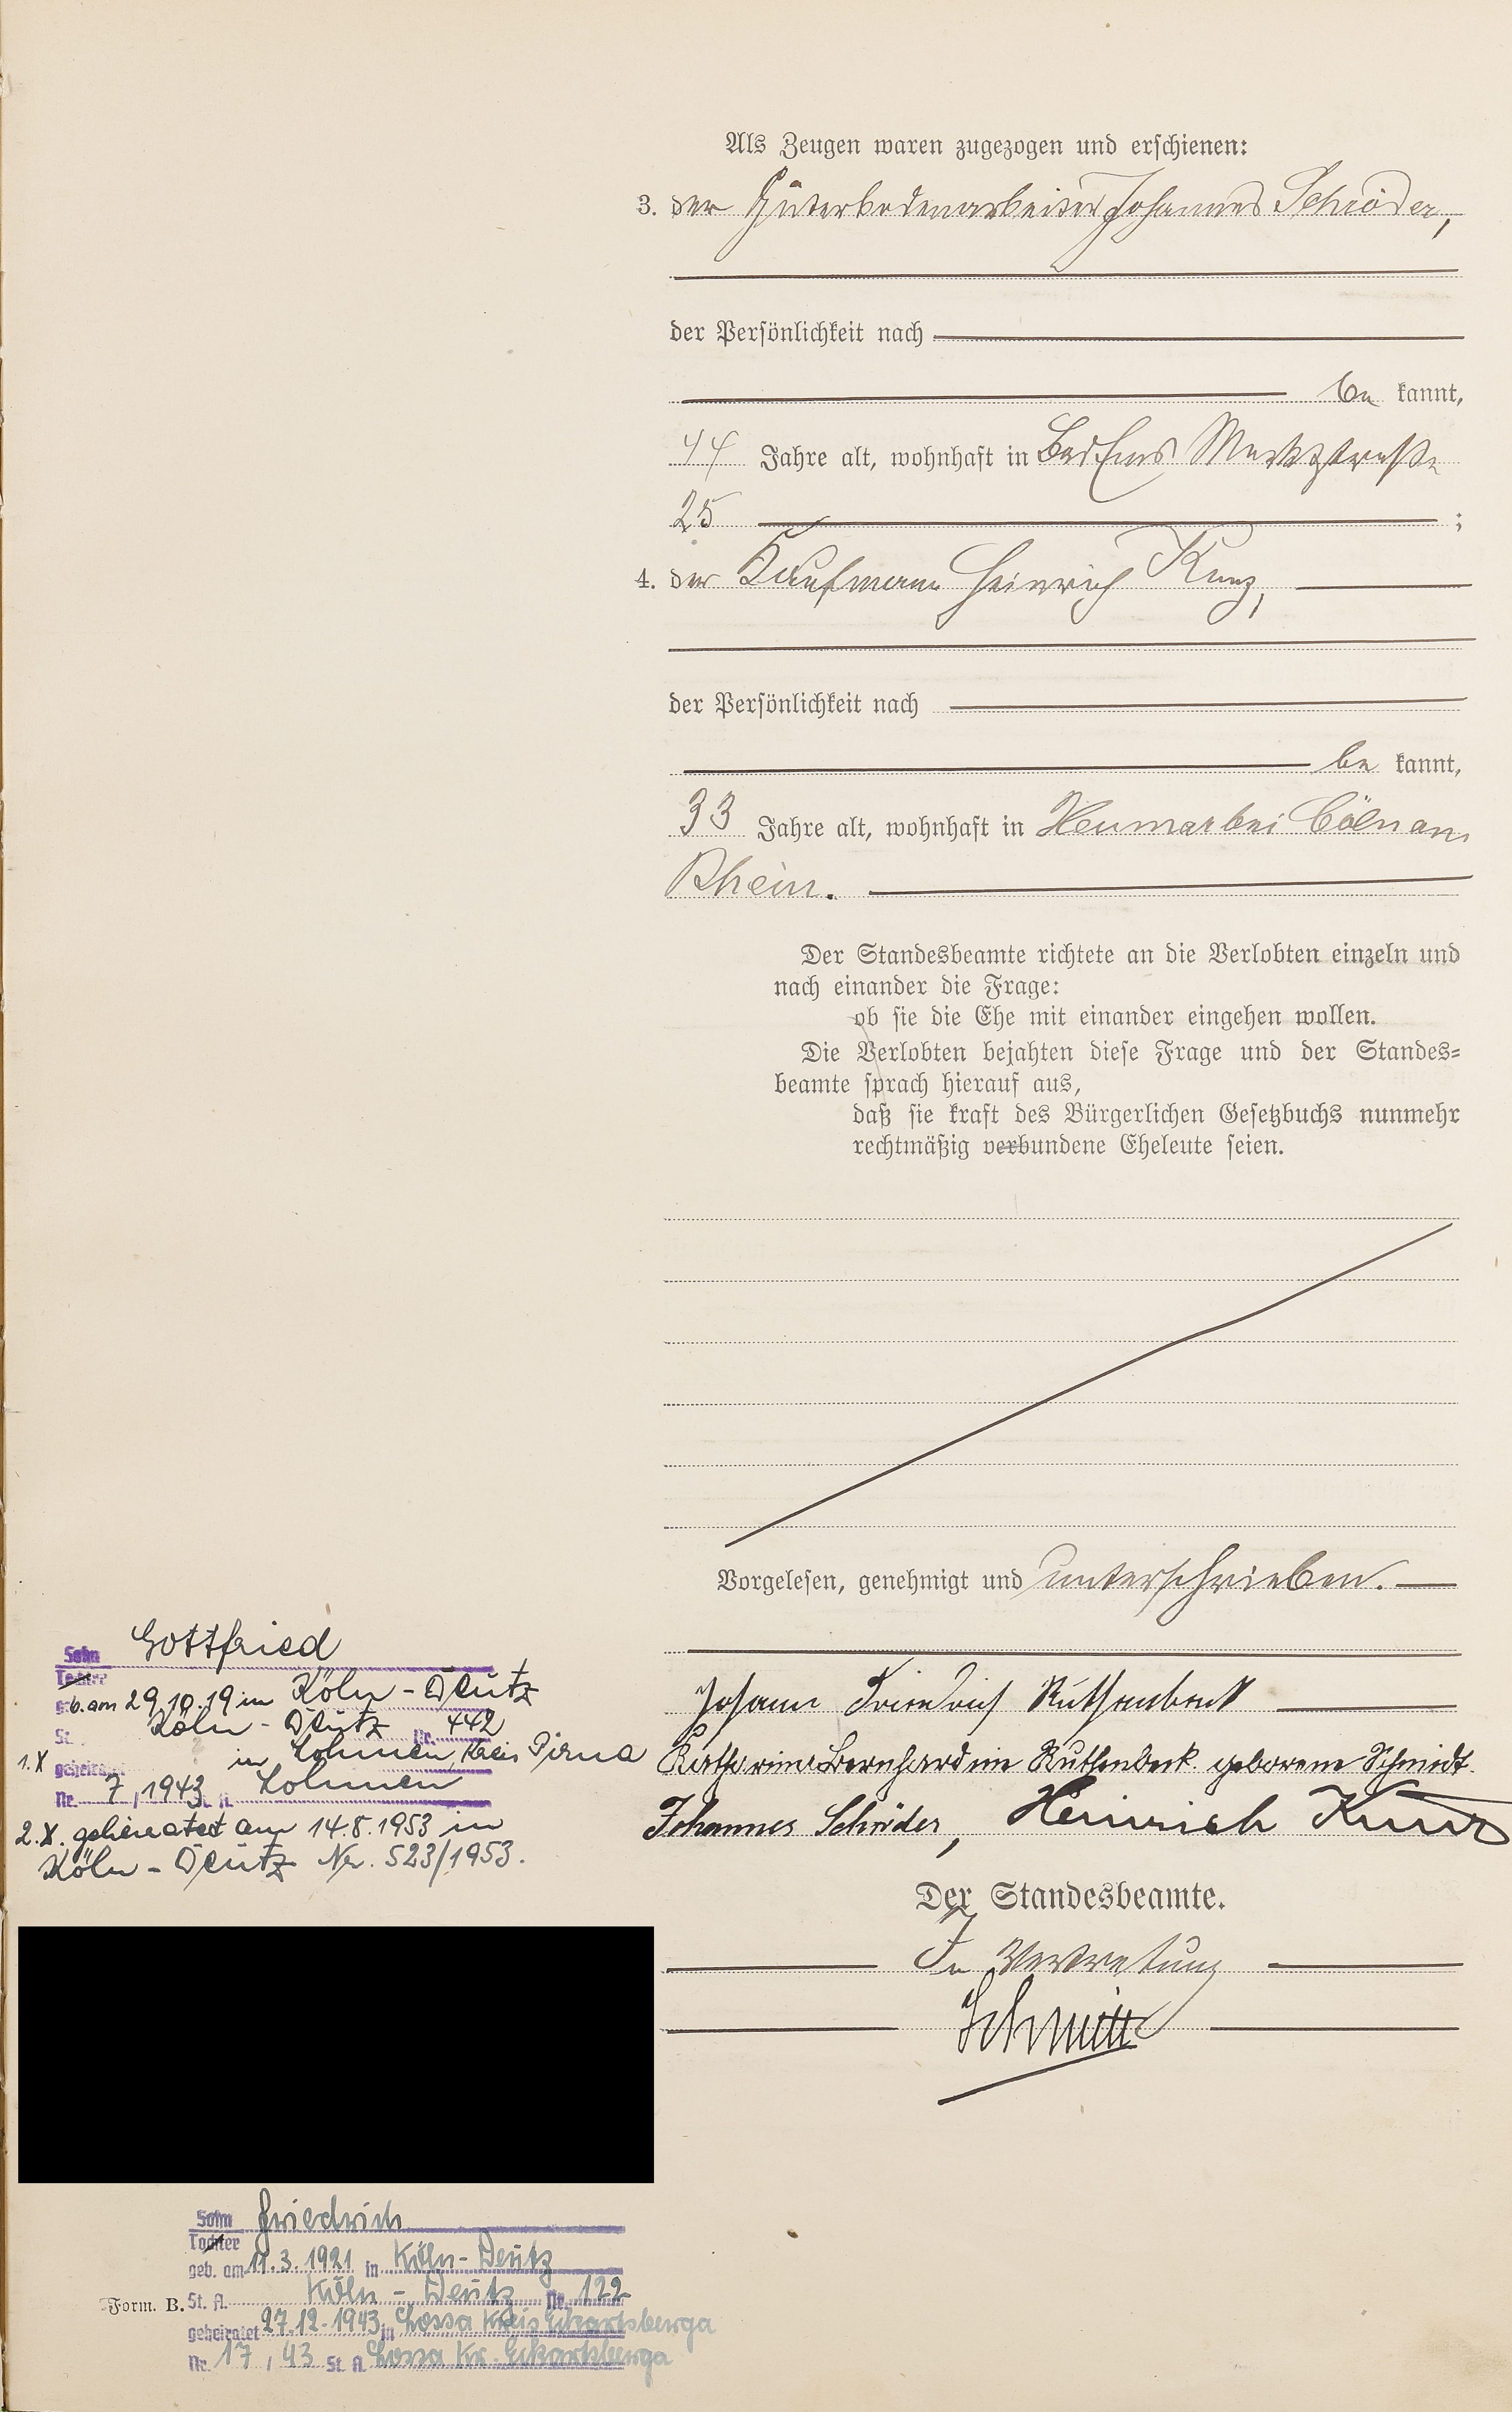 Als Zeugen waren zugezogen und erschienen:
3. der Güterbodenarbeiter Johannes Schröder,
der Persönlichkeit nach
be kannt,
44 Jahre alt, wohnhaft in Bad Ems Marktstraße
25 ;
4. der Kaufmann Heinrich Kunz,
der Persönlichkeit nach
be kannt,
33 Jahre alt, wohnhaft in Heumar bei Cöln am
Rhein.
Der Standesbeamte richtete an die Verlobten einzeln und
nach einander die Frage:
ob sie die Ehe mit einander eingehen wollen.
Die Verlobten bejahten diese Frage und der Standes=
beamte sprach hierauf aus,
daß sie kraft des Bürgerlichen Gesetzbuchs nunmehr
rechtmäßig verbundene Eheleute seien.
Vorgelesen, genehmigt und unterschrieben.
Johann Friedrich Ruthenbeck
Katharina Bernhardine Ruthenbeck geborene Schmidt.
Johannes Schröder, Heinrich Kunz
Der Standesbeamte.
In Vertretung
Schmitt
Sohn Gottfried
Tochter
geb. am 29.10.19 in Köln-Deutz
St. Köln-Deutz Nr. 442
1.X geheiratet in Lohmen, Kreis Pirna
Nr. 7, 1943 St. A. Lohmen
2.X. geheiratet am 14.8.1953 in
Köln-Deutz Nr. 523/1953.
Sohn Friedrich
Tochter
geb. am 11.3.1921 in Köln-Deutz
Form. B. St. A. Köln-Deutz Nr. 122
geheiratet 27.12.1943 in Lossa Kreis Eckartsberga
Nr. 17, 43 St. A. Lossa Kr. Eckartsberga